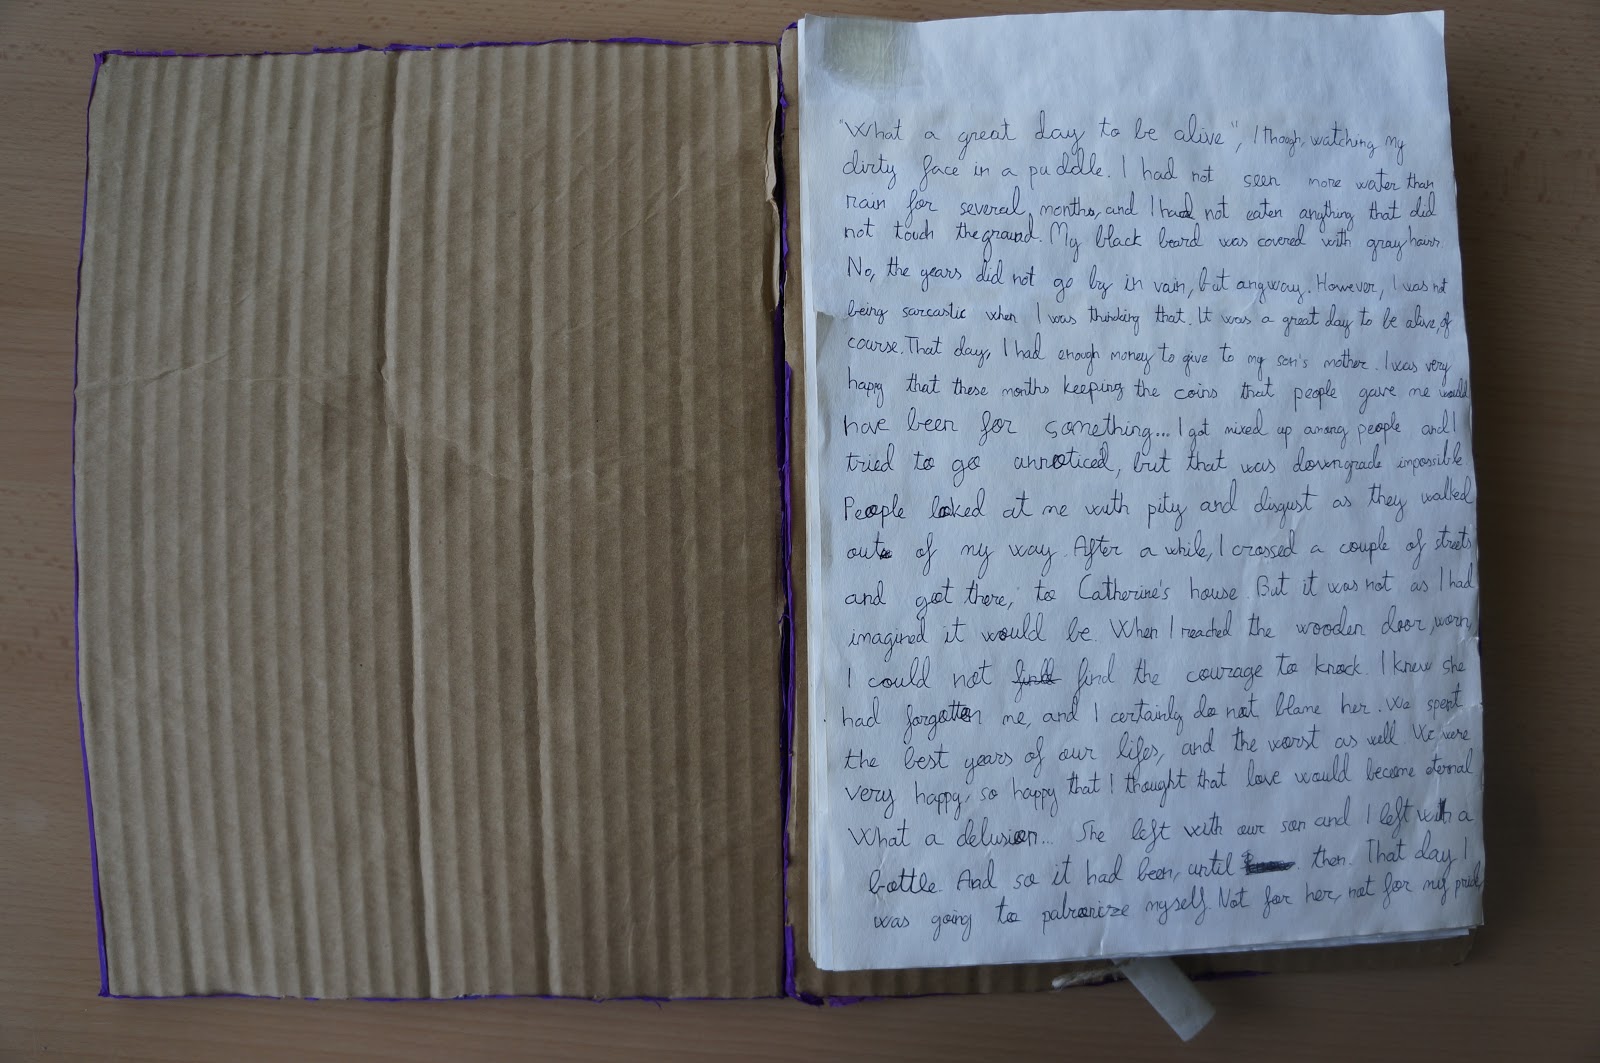 "What a great day to be alive", I though, watching my
dirty face in a puddle. I had not seen more water than
rain for several months, and I had not eaten anything that did
not touch the ground. My black beard was covered with gray hairs.
No, the years did not go by in vain, but anyway. However, I was not
being sarcastic when I was thinking that. It was a great day to be alive, of
course. That day, I had enough money to give to my son's mother. I was very
happy that these months keeping the coins that people gave me would
have been for something... I got mixed up among people and I
tried to go unnoticed, but that was downgrade impossible.
People looked at me with pity and disgust as they walked
out of my way. After a while, I crossed a couple of streets
and got there, to Catherine's house. But it was not as I had
imagined it would be. When I reached the wooden door, worn,
I could not find the courage to knock. I knew she
had forgotten me, and I certainly do not blame her. We spent
the best years of our lifes, and the worst as well. We were
very happy, so happy that I thought that love would become eternal
What a delusion... She left with our son and I left with a
bottle. And so it had been, until then. That day I
was going to patronize myself. Not for her, not for my pride,